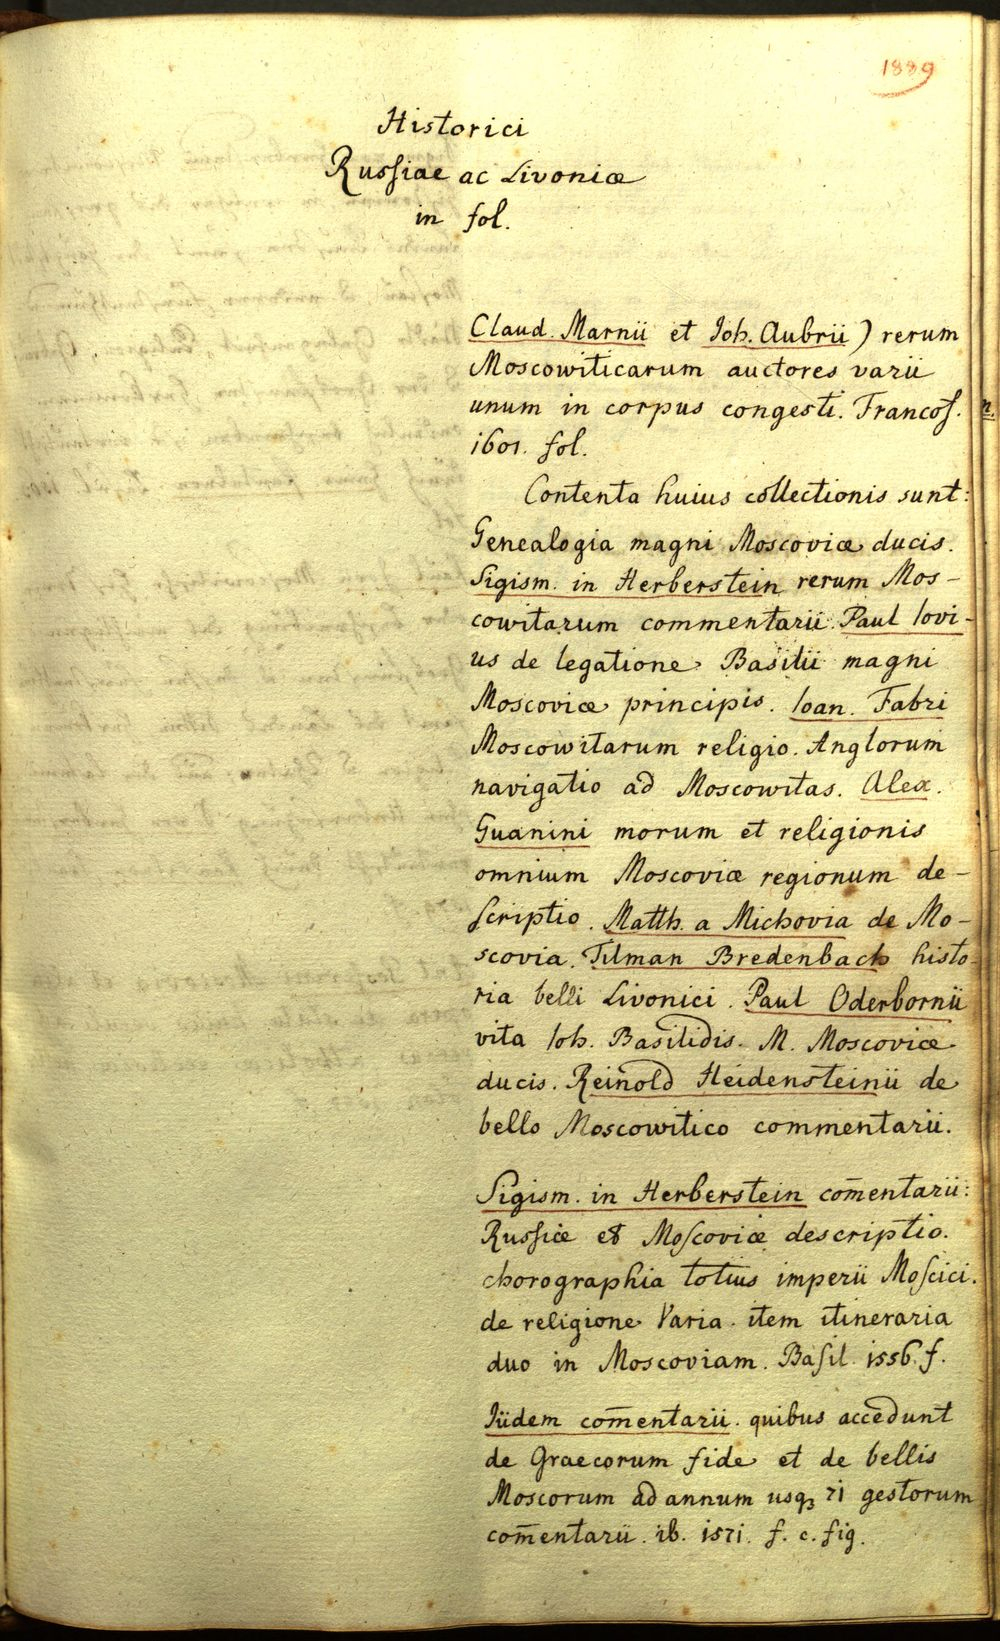 1889
Historici
Russiae ac Livoniæ
in fol.
Claud. Marnii et Joh. Aubrii) rerum
Moscowiticarum auctores varii
unum in corpus congesti. Francof.
1601. fol.
Contenta huius collectionis sunt:
Genealogia magni Moscoviæ ducis.
Sigism. in Herberstein rerum Mos-
cowitarum commentarii. Paul Iovi-
us de legatione Basilii magni
Moscoviæ principis. Ioan. Fabri
Moscowitarum religio. Anglorum
navigatio ad Moscowitas. Alex.
Guanini morum et religionis
omnium Moscoviæ regionum de-
scriptio. Matth. a Michovia de Mo-
scovia. Tilman Bredenbach histo-
ria belli Livonici. Paul Oderbornii
vita Ioh. Basilidis. M. Moscoviæ
ducis. Reinold Heidensteinii de
bello Moscowitico commentarii.
Sigism. in Herberstein com̄entarii:
Russiæ et Moscoviæ descriptio.
chorographia totius imperii Moscici.
de religione Varia. item itineraria
duo in Moscoviam. Basil. 1556. f.
Iidem com̄entarii. quibus accedunt
de Graecorum fide et de bellis
Moscorum ad annum usqꝫ 71 gestorum
com̄entarii. ib. 1571. f. c. fig.